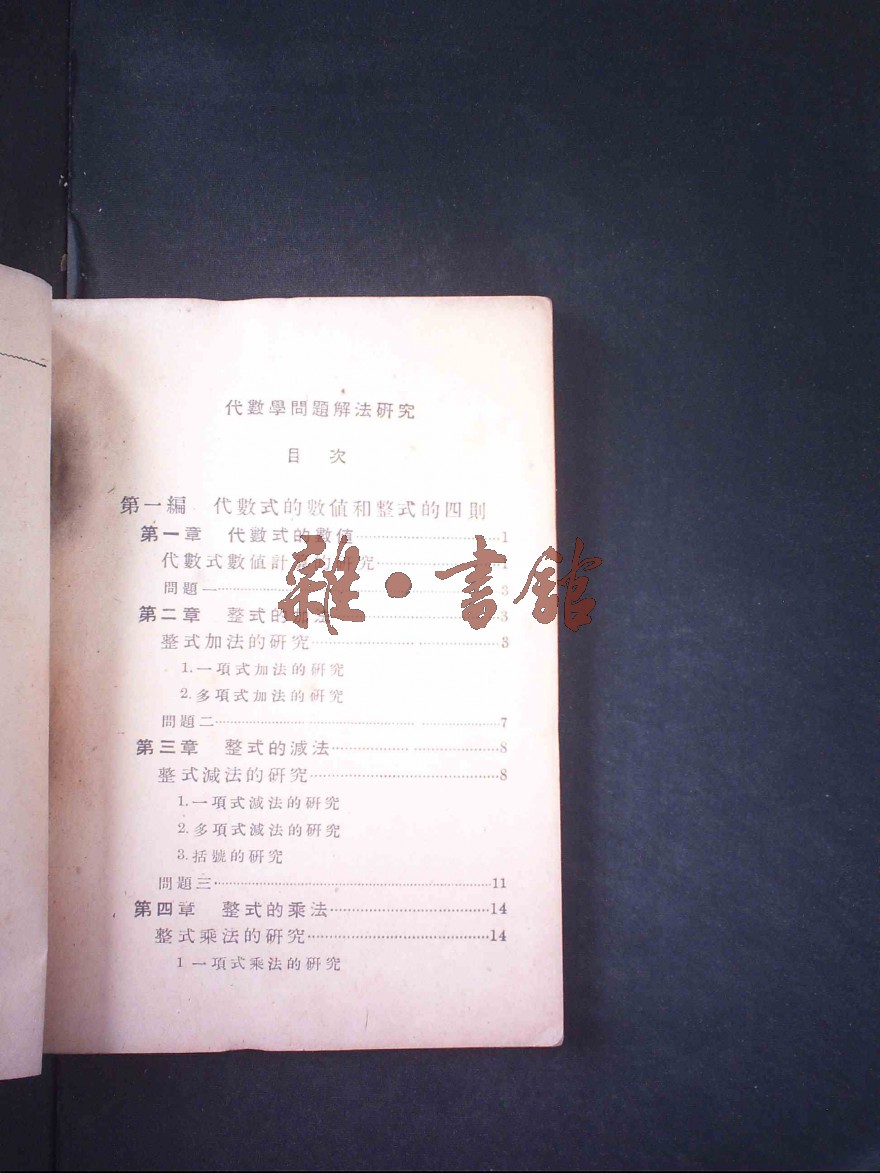 代數學問題解法研究
目 次
第一編 代數式的數值和整式的四則
第一章 代數式的數值 1
代數式數值計 的研究 1
問題一 3
第二章 整式的加法 3
整式加法的研究 3
1.一項式加法的研究
2.多項式加法的研究
問題二 7
第三章 整式的減法 8
整式減法的研究 8
1.一項式減法的研究
2.多項式減法的研究
3.括號的研究
問題三 11
第四章 整式的乘法 14
整式乘法的研究 14
1 一項式乘法的研究
雜·書館